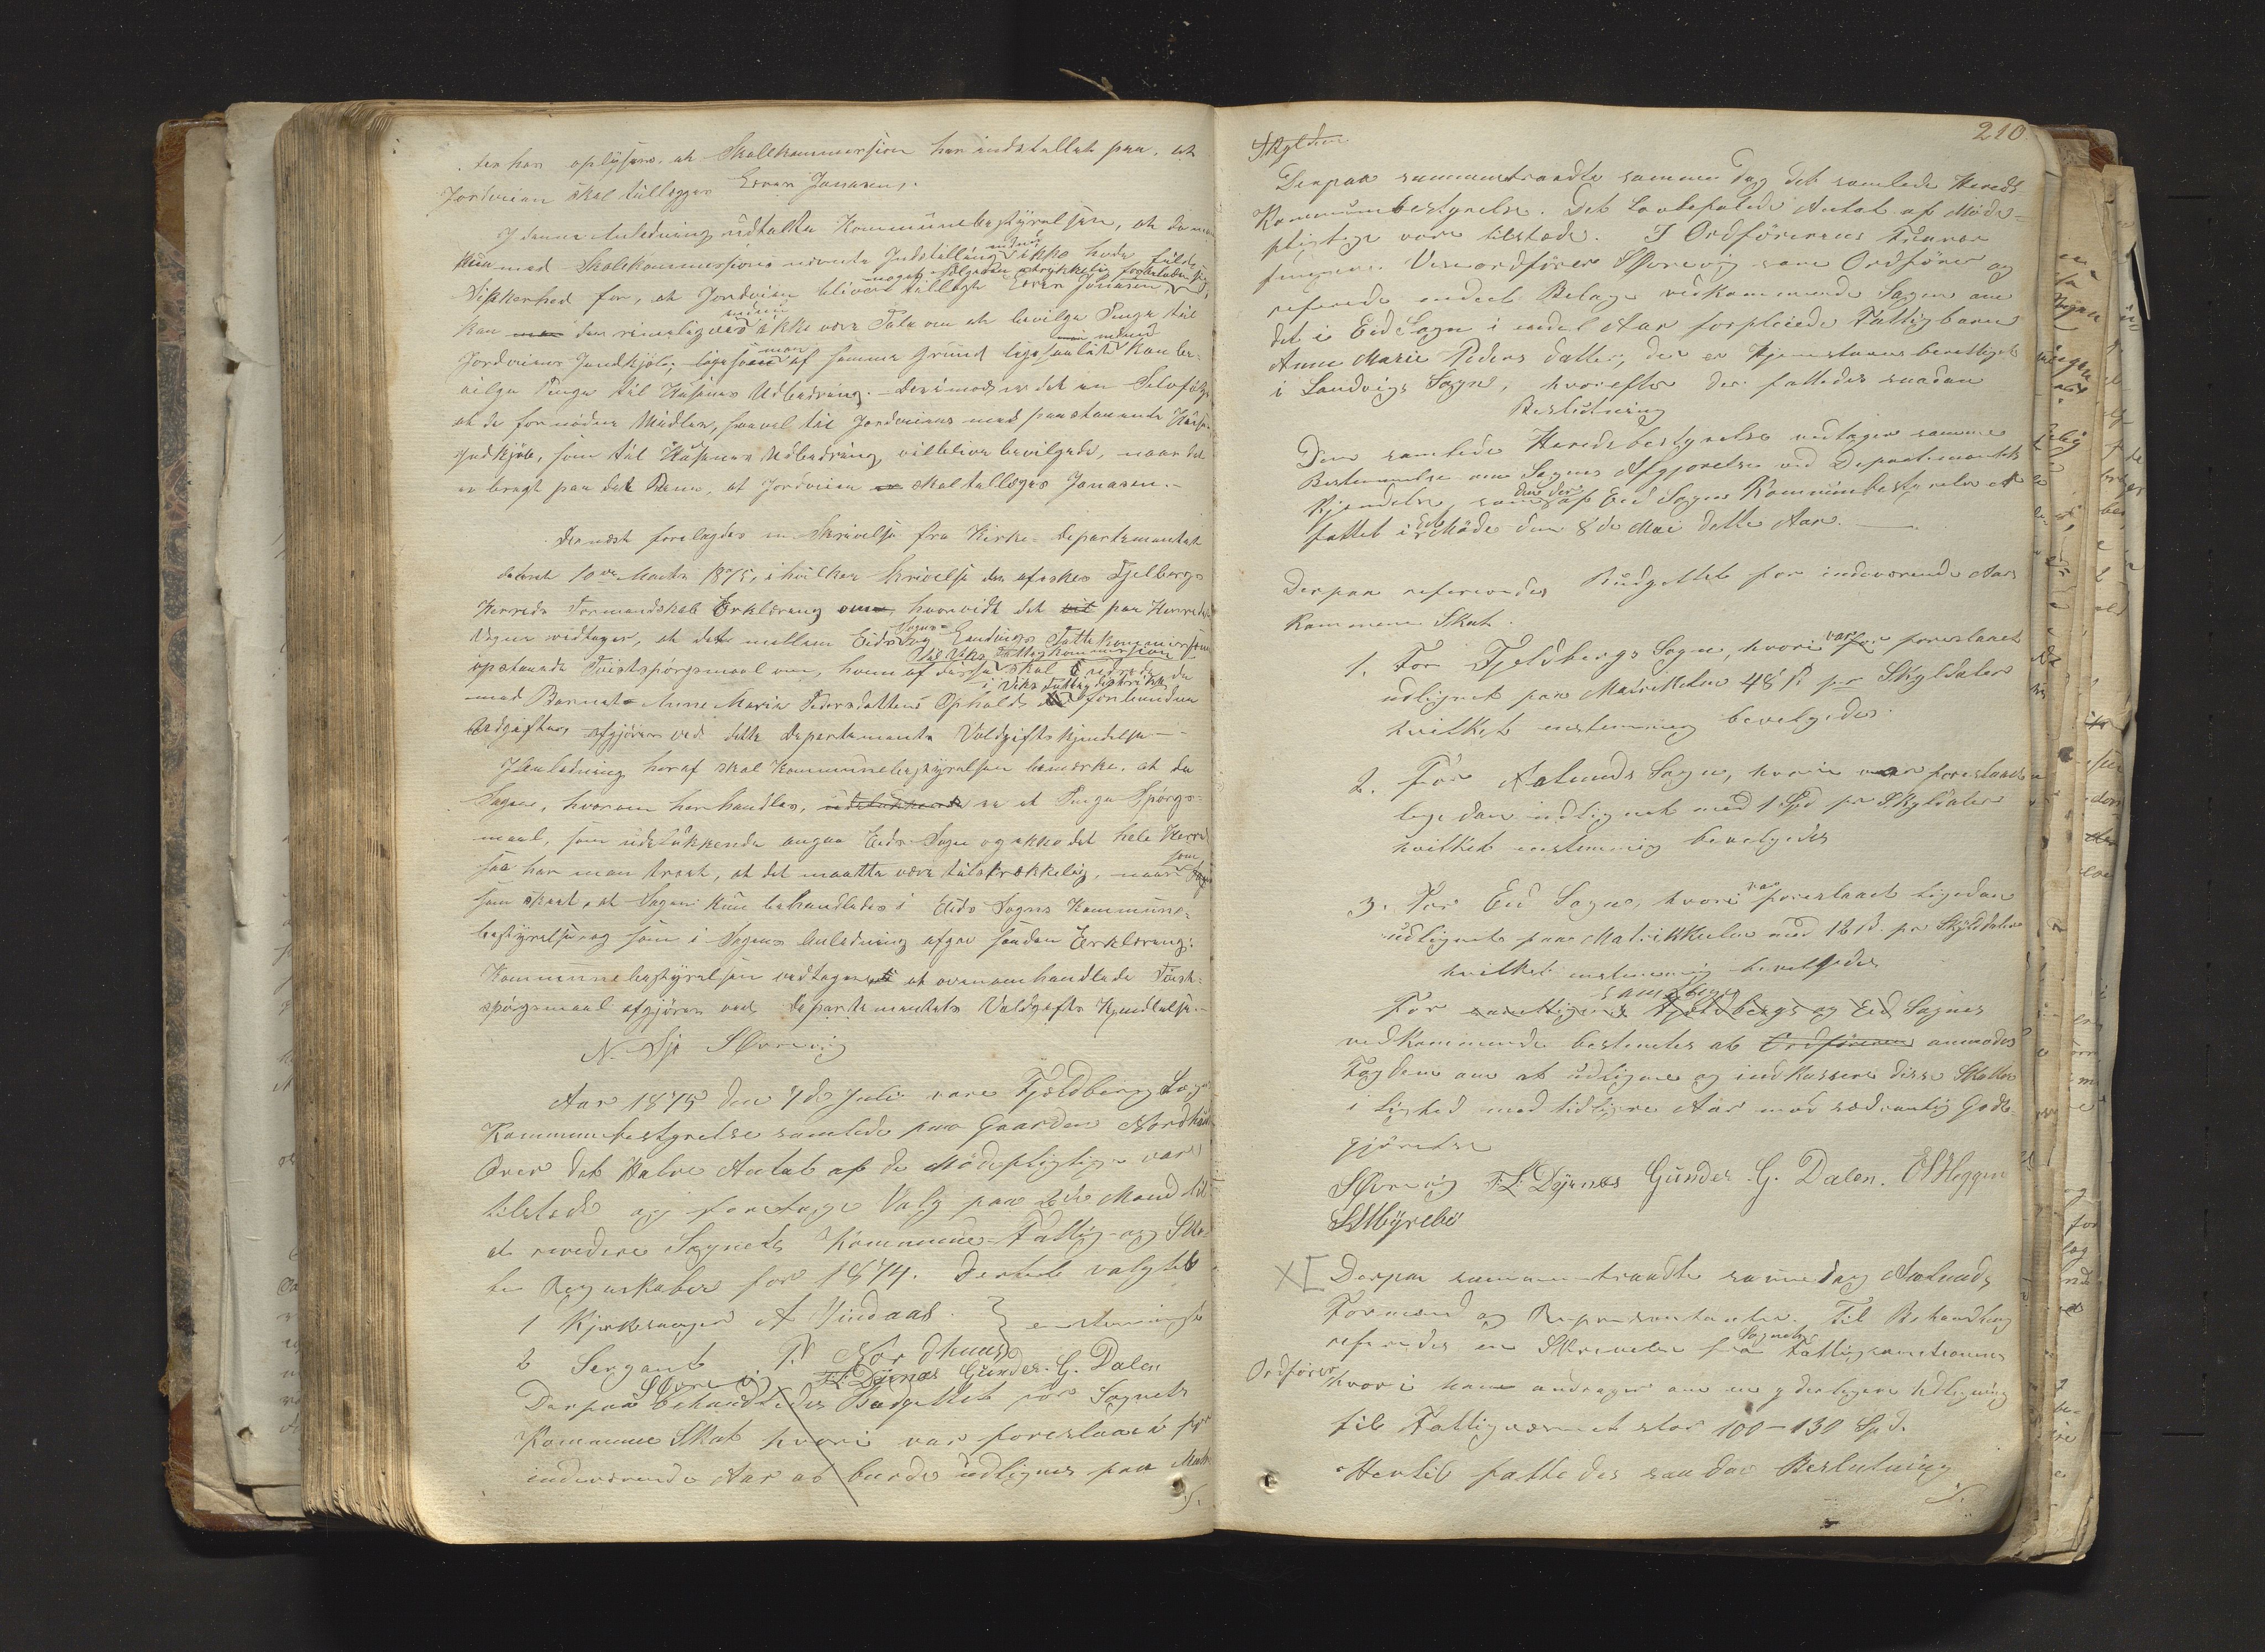 ter han oplyses, at Skolekommission har indstillet paa, at
Jordveien skal tillægges Esven Jonasen.
I denne Anledning udtalte Kommunebestyrelsen, at da man
kun med Skolekommissions nævnte Indstilling endnu ikke hade fuld
Visskerhed for, at Jordveien bliver tillagt Esven Jonasen
kan man der rimeligvis endnu ikke være Tale om at bevilge Penge til
Jordveiens Indkjøb, ligesom man af samme Grund ligesaalidt man endnu kan be-
vilge Penge til Husenes Udbedring. Derimod er det en Selvfølge
at de fornødne Midler, saavel til Jordveiens med paastaaende Huse
Indkjøb, som til Husenes Udbedring vil blive bevilgede, naar det
er bragt paa det Rene, at Jordveien skal tillægges Jonasen.-
Dernæst forelagdes en Skrivelse fra Kirke-Departementet
datert 10de Marts 1875, i hvilken Skrivelse der æskes Fjelbergs
Herreds Formandskabs Erklæring om hvorvidt det vil paa Herredets
Vegne vedtages, at det mellem Eids Sogns- og Landvigs Fattikommission
opstaaede Tvistspørgsmaal om, hvem af disse skal udrede de
til Viks Fattigkommission
i Viks Fattigdistrikt
med Barnet Anne Marie Pedersdatters Ophold forbundne
Udgifter, afgjøres ved dette Departements Voldgifts Kjendelse -
I Anledning heraf skal Kommunebestyrelsen bemærke, at da
Sagen, hvorom her handles, udelukkende er et Penge Spørgs-
maal, som udelukkende angaar Eids Sogn og ikke det hele Herred
saa har man troet, at det maatte være tilstrækkelig, naar
som skeet, at Sagen kun behandledes i Eids Sogns Kommune-
bestyrelse og som i Sagens Anledning afgav saadan Erklæring:
Kommunebestyrelsen vedtager at ovenomhandlede Tvist-
spørgsmaal afgjøres ved Departementets Voldgifts Kjendelse.-
N. Sjo SØvrevig
Aar 1875 den 7de Juli vare Fjeldberg Sogns
Kommunebestyrelse samlede paa Gaarden Nordhus
Over det halve Antal af de Mødepligtige vare
tilstede og foretoge Valg paa 2de Mænd til
at revidere Sognets Kommune-Fattig- og Sko-
le Regnskaber for 1874. Dertil valgtes
1 Kirkesanger A Vindaas } enstemmigt
2 Sergant P. Nordhuus
SØvrevig F.L. Dyrnes Gunder. G. Dalen
Derpaa behandledes Budgettet for Sognets
Kommune Skat hvori var foreslaaet for
indeværende Aar at burde udlignes paa Matr
210.
Skylden.
Derpaa sammentraadte samme Dag det samlede Hereds
Kommunbestyrelse. Det Lovbefalede Antal af Møde-
pligtige vare tilstede. I Ordførerens Fravær
fungerer Viseordfører SØvrevig som Ordfører og
referede endeel Bilage vedkommende Sagen om
det i Eid Sogn i endel Aar forpleiede Fattigbarn
Anne Marie Peders datter, der er Hjemstavns berettiget
i Landvigs Sogn, hvorefter der fattedes saadan
Beslutning
Den samlede Heredsbestyrelse vedtager samme
Bestemmelse om Sagens Afgjørelse ved Departementets
Kjendelse som den der af Eid Sogns Kommunbestyrelse er
fattet i det Møde den 8de Mai dette Aar.
Derpaa refereredes Budgettet for indeværende Aars
Kommune Skat.
1. For Fjeldbergs Sogn, hvori var foreslaaet
udlignet paa Matrikelen 48 ß pr Skyldaler
hvilket enstemmig bevilgedes.
2. For Aalunds Sogn, hvori var foreslaaet
lige dan udlignet med 1 Spd pr Skyldaler
hvilket enstemmig bevilgedes
3. For Eid Sogn, hvori var foreslaaet ligedan
udlignet paa Matrikkulen med 12 ß. pr Skylddaler
hvilket enstemmig bevilgedes
For samtlige Fjeldbergs og Eid Sognes
vedkommende bestemtes at Ordføreren anmodes
Fogden om at udligne og indkassere disse Skatter
i Lighed med tidligere Aar mod sædvanlig Godt-
gjørelse
SØvrevig F.L. Dyrnes Gunder. G. Dalen. OHeggen
SMyrebø
Derpaa sammentraadte samme Dag Aalunds
Formænd og Repræsentanter. Til Behandling
referedes en Skrivelse fra Sognets Fattigkomissions
Ordfører hvori han andrager om en yderligere Udligning
til Fattigvæsnet stor 100-130 Spd.
Hertil fattedes saadan Beslutning